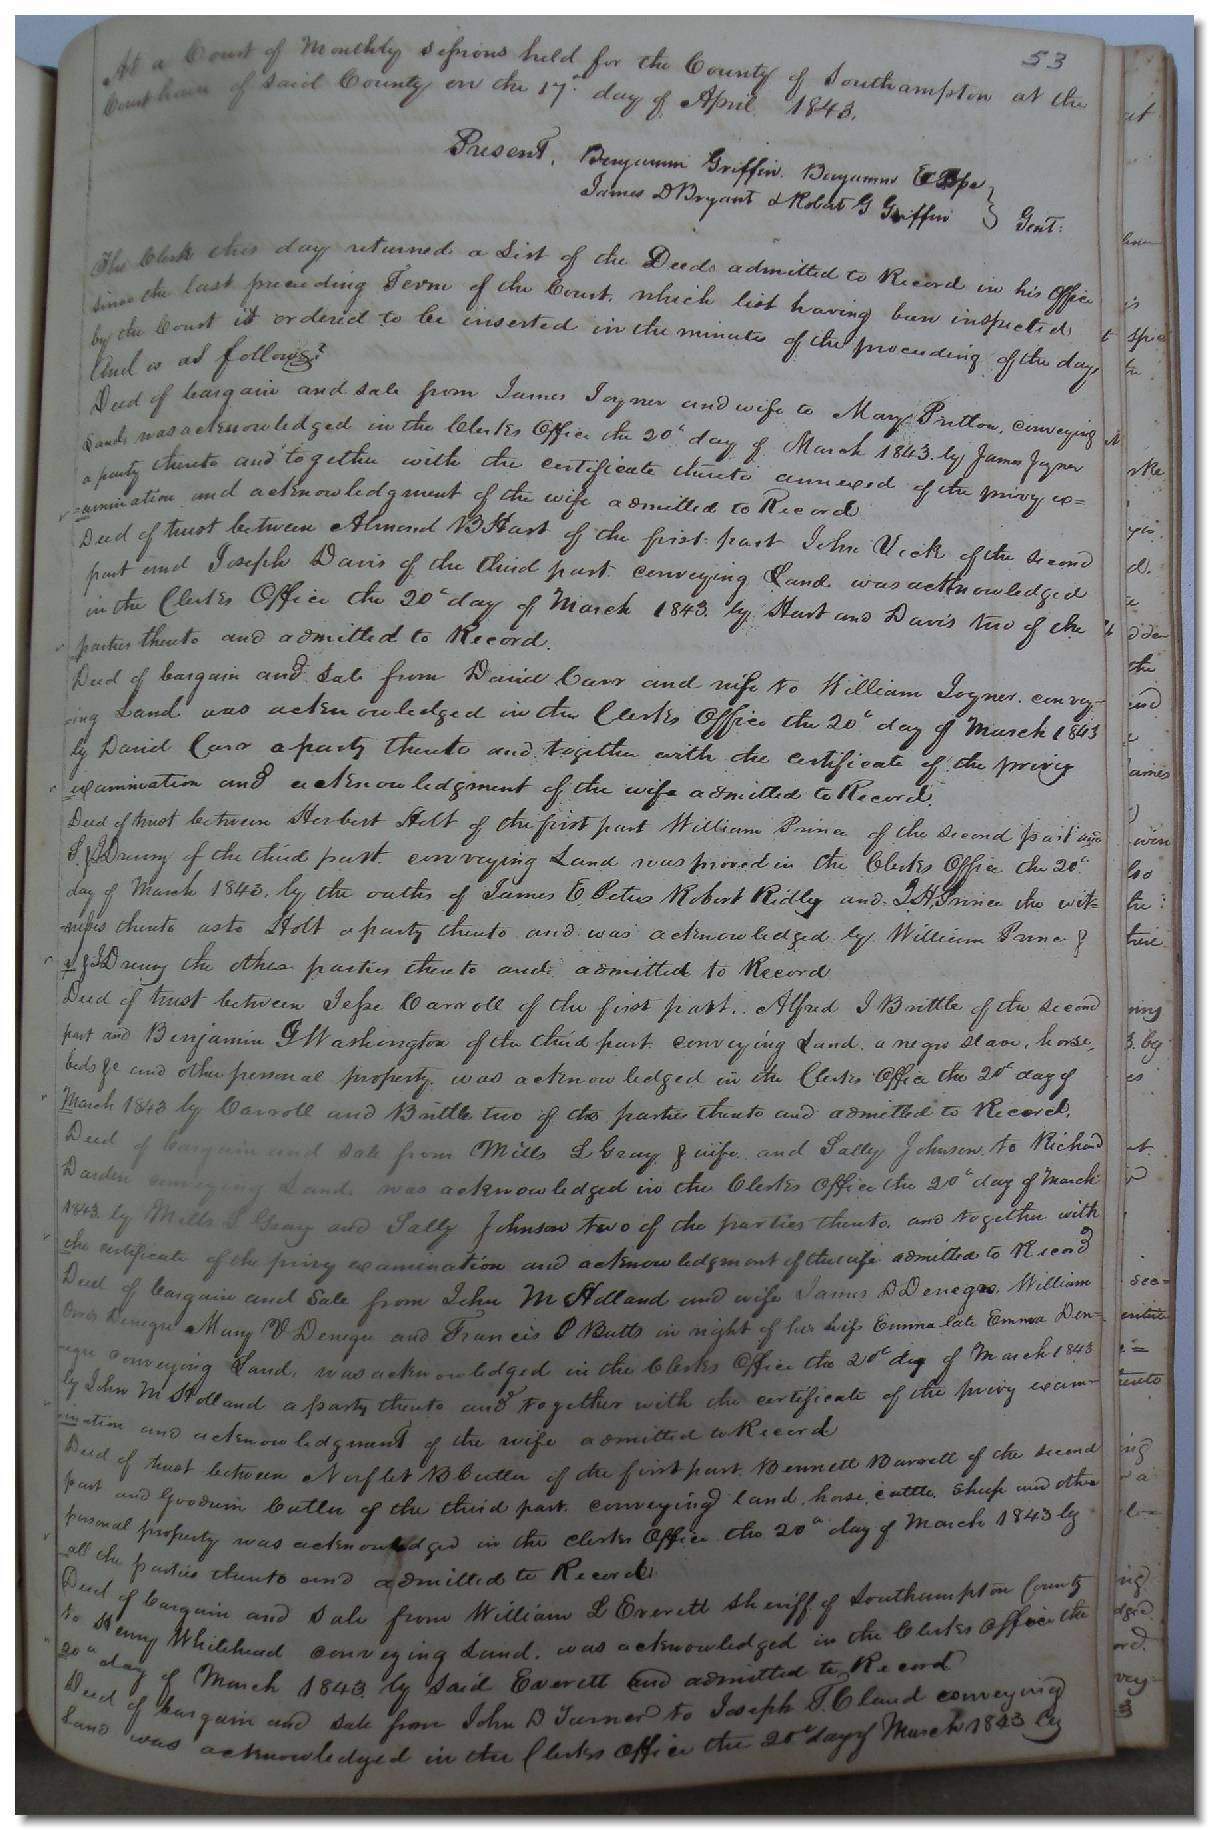 53
At a Court of Monthly sessions held for the County of Southampton at the
Courthouse of said County on the 17th day of April 1843.
Present, Benjamin Griffin. Benjamin E Pope
James D Bryant & Robert G Griffin } Gent:
The Clerk this day returned a List of the Deeds admitted to Record in his Office
since the last preceeding Term of the Court, which list having been inspected
by the Court it ordered to be inserted in the minutes of the proceeding of the day
And is as follows:
Deed of bargain and sale from James Joyner and wife to Mary Pretlow, conveying
Land, was acknowledged in the Clerks Office the 20th day of March 1843. by James Joyner
a party thereto and together with the certificate thereto annexed of the privy ex=
=amination and acknowledgment of the wife admitted to Record
Deed of trust between Almond B Hart of the first part John Vick of the second
part and Joseph Davis of the third part conveying Land was acknowledged
in the Clerks Office the 20th day of March 1843. by Hart and Davis two of the
parties thereto and admitted to Record.
Deed of bargain and sale from David Carr and wife to William Joyner. convey-
ing Land was acknowledged in the Clerks Office the 20th day of March 1843
by David Carr a party thereto and together with the certificate of the privy
examination and acknowledgment of the wife admitted to Record.
Deed of trust between Herbert Holt of the first part William Prince of the second part and
Drewry of the third part. conveying Land was proved in the Clerks Office the 20th
day of March 1843. by the oaths of James E Peters Robert Ridley and J H Prince the wit=
nesses thereto as to Holt a party thereto and was acknowledged by William Prince &
Drewry the other parties thereto and admitted to Record
Deed of trust between Jesse Carroll of the first part. Alfred J Brittle of the second
part and Benjamin G Washington of the third part. conveying Land. a negro slave, horse,
beds &c and other personal property. was acknowledged in the Clerks Office the 20th day of
March 1843 by Carroll and Brittle two of the parties thereto and admitted to Record.
Deed of bargain and sale from Mills L Gray & wife and Sally Johnson to Richard
Darden conveying Land. was acknowledged in the Clerks Office the 20th day of March
1843. by Mills L Gray and Sally Johnson two of the parties thereto. and together with
the certificate of the privy examination and acknowledgment of the wife admitted to Record
Deed of bargain and Sale from John M Holland and wife James D Denegre, William
Denegre Mary V Denegre and Francis P Butts in right of his wife Emma late Emma Den-
egre conveying Land, was acknowledged in the Clerks Office the 20th day of March 1843
by John M Holland a party thereto and together with the certificate of the privy exam-
ination and acknowledgment of the wife admitted to Record
Deed of trust between Norflet B Cutler of the first part. Bennett Barrett of the second
part and Goodwin Cutler of the third part. conveying land, horse, cattle. Sheep and other
personal property was acknowledged in the clerks Office the 20th day of March 1843 by
all the parties thereto and admitted to Record
Deed of bargain and sale from William L Everett Sheriff of Southampton County
to Henry Whitehead conveying Land. was acknowledged in the Clerks Office the
20th day of March 1843 by said Everett and admitted to Record
Deed of bargain and sale from John D Turner to Joseph T. Cland conveying
Land was acknowledged in the Clerks Office the 20th day of March 1843 by